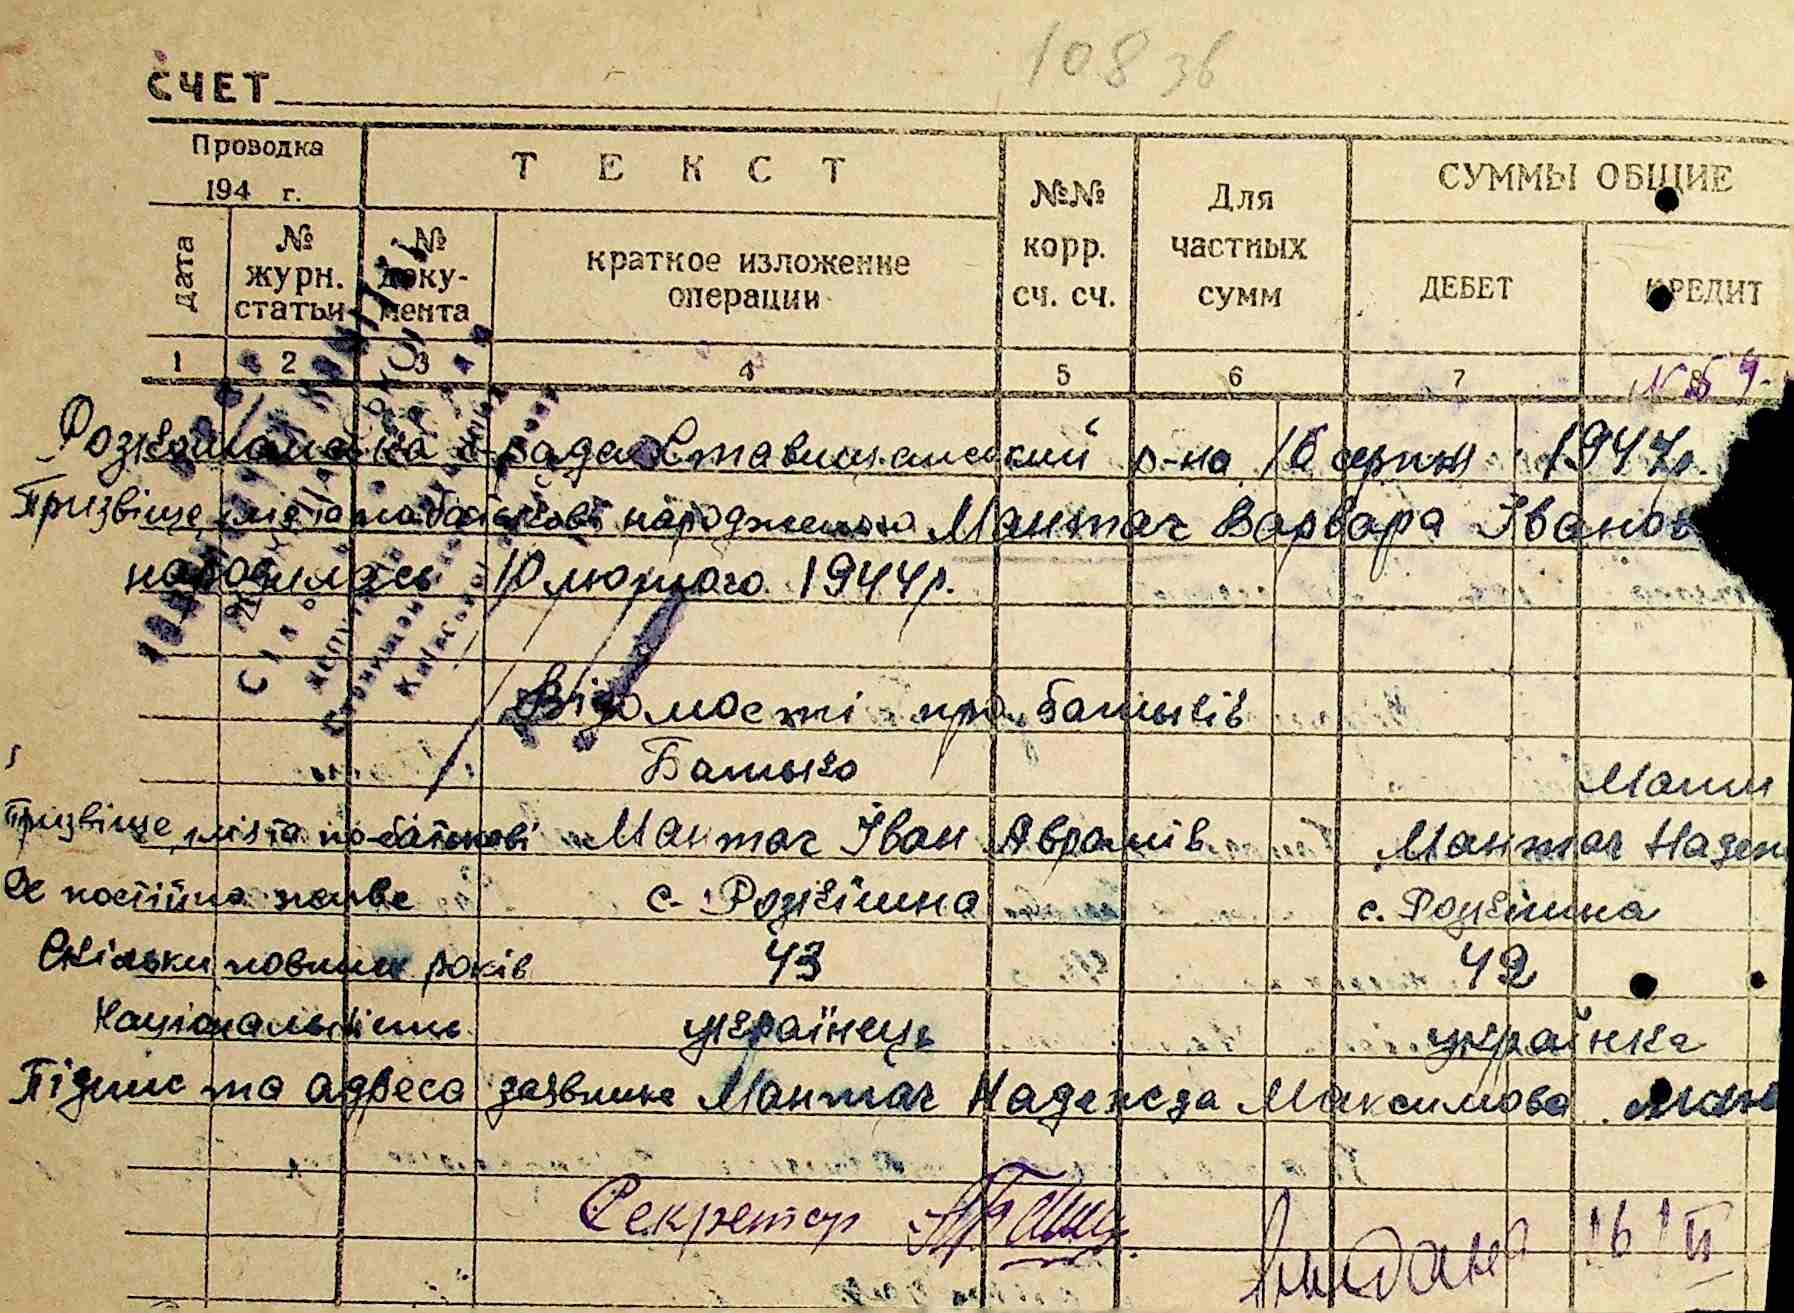 108 зв
СЧЕТ
Проводка 194 г.
ТЕКСТ
№№ корр. сч. сч.
Для частных сумм
СУММЫ ОБЩИЕ
Дата
№ журн. статьи
№ доку-мента
краткое изложение операции
ДЕБЕТ
КРЕДИТ
1 2 3 4 5 6 7 8
р-на 16 серпня 1947р.
Призвіще, імя та по батькові народженого Мантач Варвара Іванов
народилась 10 лютого 1944р.
Відомості про батьків
Батько Мати
Призвіще, імя та по-батькові Мантач Іван Аврамів Мантач Наде
Де постійно живе с. Розкішна с. Розкішна
Скільки повних років 43 42
Національність українець українка
Підпис та адреса заявника Мантач Надежда Максимова
Секретар